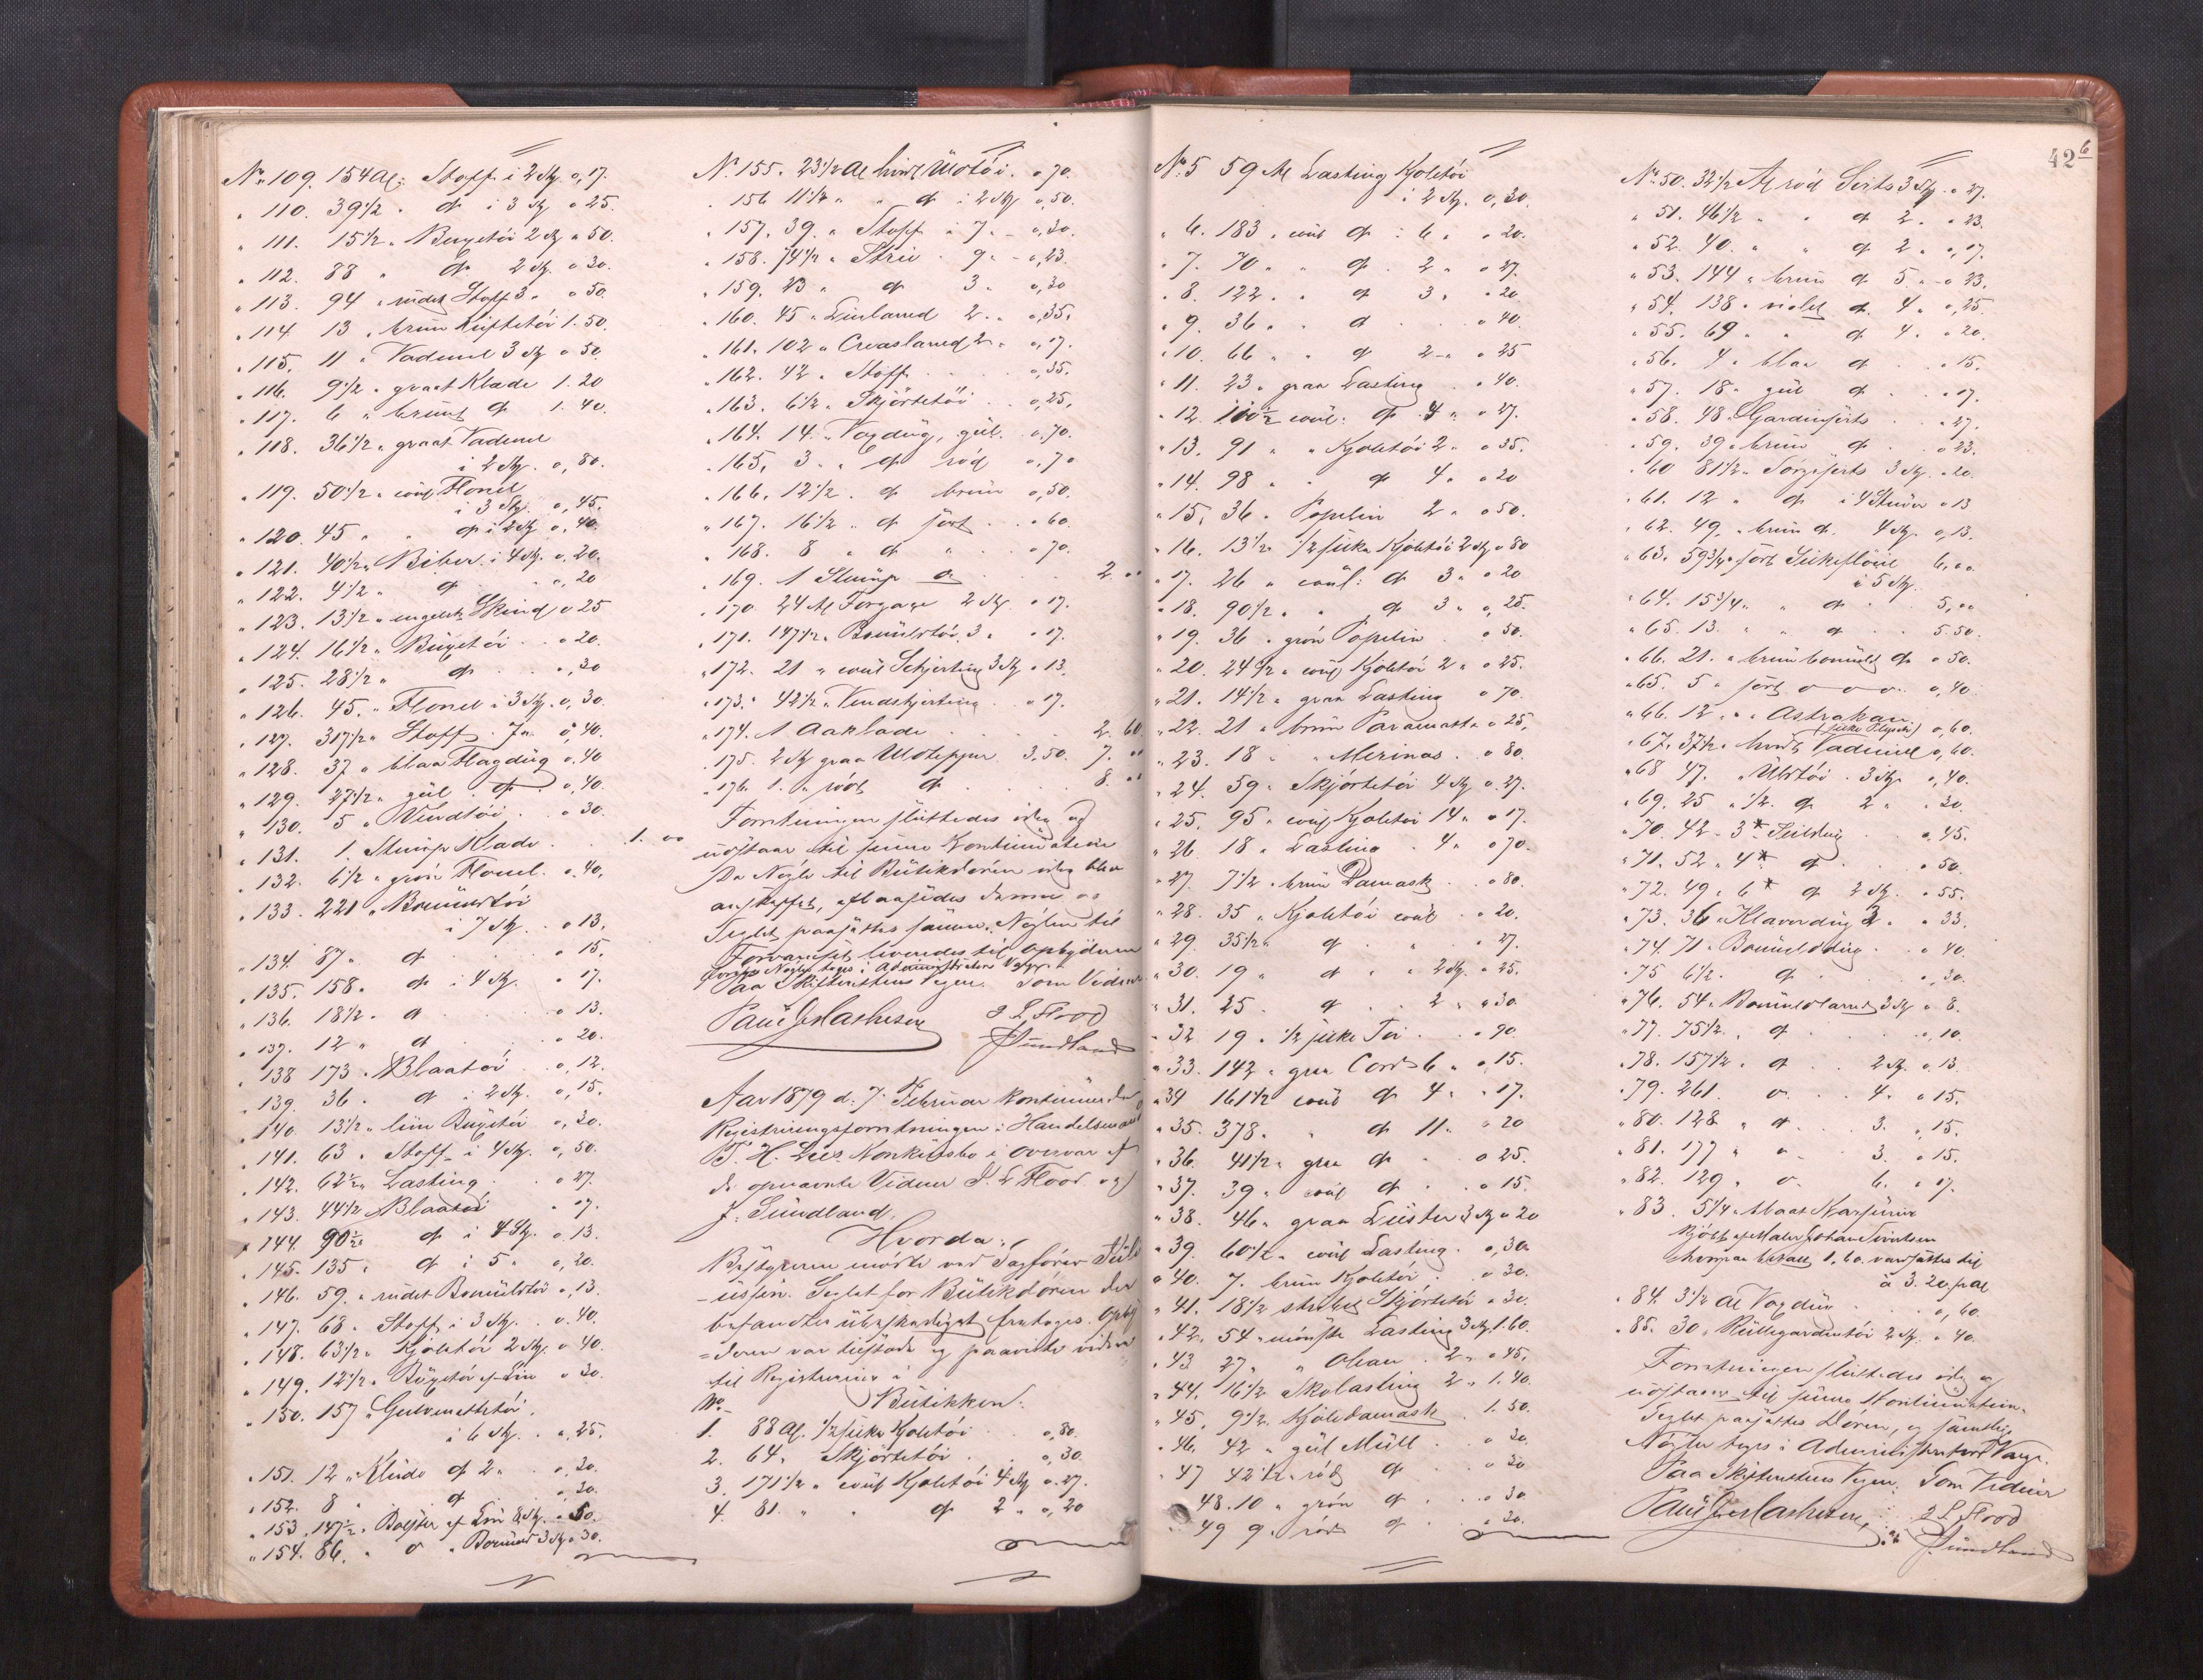 No 109. 154 Al: Stoff i 2 St. o,17.
" 110. 39 1/2 " do i 3 St o 25.
" 111. 15 1/2 " Buxetöi 2 St o 50.
" 112. 88 " do 2 St. o 30.
" 113. 94 " rudet Stoff 3 " o 50.
" 114. 13 " brun Kuftetöi 1.50.
" 115. 11 " Vadmel 3 St o 50.
" 116. 9 1/2 " graat Klæde 1.20
" 117. 6 " brunt do 1.40.
" 118. 36 1/2 " graat Vadmel
i 2 St. o,80.
" 119. 50 1/2 " coul Flonel
i 3 St. o,45.
" 120. 45 " " do i 2 St o,40.
" 121. 40 1/2 " Biber. i 4 St. o.20.
" 122. 4 1/2 " do . o,20
" 123. 13 1/2 " engelsk Skind o 25
" 124. 16 1/2 " Buxetöi . . o 20.
" 125. 28 1/2 " do . o,30
" 126. 45. " Flonel i 3 St. o,30.
" 127. 317 1/2 " Stoff . 7 " o,40.
" 128. 37 " blaa Flagdug o.40
" 129. 27 1/2 " gul . do . o,40.
" 130. 5 " Vendtöi . o 30.
" 131. 1. Stump Klæde . . 1. oo
" 132. 6 1/2 " grön Flonel. o.40.
" 133. 221 " Bomuldstöi
i 7 St. . o 13.
" 134. 87 " do . . o 15.
" 135. 158 " do i 4 St. o 17.
" 136. 18 1/2 " do . . o 13.
" 137. 12 " do . . o 20.
" 138 173 " Blaatöi . o,12.
" 139. 36 " do i 2 St. o,15.
" 140. 13 1/2 " lin Buxetöi o,30.
" 141. 63 " Stoff i 4 St. o,50.
" 142. 62 1/2 " Lasting . o 27.
" 143. 44 1/2 " Blaatöi o 17.
" 144. 90 1/2 do i 4 St. o 13.
" 145. 135 " do i 5 " o,20.
" 146. 59. " rudet Bomuldstöi o,13.
" 147. 68 " Stoff i 3 St. . o.40.
" 148. 63 1/2 " Kjoletöi 2 St. o 40.
" 149. 12 1/2 " Buxetöi af Lin o 30.
" 150. 157 " Gulvmattetöi.
i 6 St. . o,25.
" 151. 12 " Klude do 2 " . o,20.
" 152. 8 " do . . o,20.
" 153. 147 1/2 " Bolster af Lin 8 St. o 50.
" 154. 86. " o " Bomuld 3 St o 30.
No 155. 23 1/2 Al hvid Uldtöi. o 70.
" 156 11 1/2 " " do i 2 St o,50.
" 157. 39. " Stoff " 7 " o,30.
" 158. 74 1/2 " Strie . 9 " o,23.
" 159. 23 " do 3 " o,30
" 160. 45 " Linlærred 2 " o,35.
" 161. 102 " Creaslærred 2 " o,17.
" 162. 42 " Stoff . . . o,35.
" 163. 6 1/2 " Skjörtetöi . . o,25.
" 164. 14 " Voxdug, gul. . o.70.
" 165. 3 " " do röd o,70
" 166. 12 1/2 " do brun o,50.
" 167. 16 1/2 " do sort . . o 60.
" 168. 8 " do " . . o 70.
" 169. 1 Stump do . . . . 2 oo
" 170 24 Al Forgaze 2 St o 17.
" 171. 147 1/2 " Bomuldstöi. 3 " o 17.
" 172. 21 " coul Schjerting 3 St o 13.
" 173. " 42 1/2 " Vendskjerting . o 17.
" 174. 1 Aaklæde . . . . . 2. 60
" 175. 2 St graa Uldtepper 3.50. 7. oo
" 176. 1. " rödt do . . . 8. oo
Forretningen sluttedes idag og
udstaar til senere Kontinuation
Da Nögle til Butikdören idag blev
anskaffet, aflaasedes denne og
Seglet paasattes samme. Nöglen til
Forværelset leveredes til Opbyderen
øvrige Nögler toges i Administrators Varge.
Paa Skifterettens Vegne. Som Vidner
Paul Ges Mathesen J L Flood
J Sundland
Aar 1879 d. 7 Februar kontinueredes
Registreringsforretningen i Handelsmand
T. H. Lies Konkursbo i Overvær af
de opnævnte Vidner J. L. Flood og
J. Sundland.
Hvorda:
Bestyreren mödte ved Sagförer Juli
-ussen. Seglet for Butikdören der
befandtes ubeskadiget fratoges. Opby
=deren var tilstede og paaviste videre
til Registrering i
No Butikken:
1. 88 Al. 1/2 silke Kjoletöi . . o,80.
2. 64 " Skjörtetöi . . . o,30.
3. 171 1/2 " coul Kjoletöi 4 St o.27.
4. 81. " " do 2 " o,20
42 6
No 5 59 Al Lasting Kjoletöi
i 2 St. o,30.
" 6. 183 " coul do : 6 " o 20.
" 7. 70 " " do . 2 " o 27.
" 8. 122 " " do 3 " o 20
" 9. 36 " " do . . o 40.
" 10. 66 " " do 2 " o 25
" 11. 23 " graa Lasting . . o 40.
" 12. 100 1/2 coul: do 4 " o 27.
" 13. 91 " " Kjoletöi 2 " o 35.
" 14. 98 " " do 4 " o 20
" 15. 36 " Popelin 2 " o 50.
" 16. 13 1/2 " 1/2 silke Kjoletöi 2 St o 80
" 17. 26 " coul: do 3 " o 20
" 18. 90 1/2 " " do 3 " o,25.
" 19. 36 " grön Popelin . o 50.
" 20. 24 1/2 " coul Kjoletöi 2 " o 25.
" 21. 14 1/2 " graa Lasting o 70.
" 22. 21 " brun Paramatta o 25.
" 23. 18 " " Merinos. . o 80.
" 24. 59 " Skjörtetöi 4 St o.27.
" 25. 95 " coul Kjoletöi 14 " o 17.
" 26 18 " Lasting . 4 " o 70.
" 27. 7 1/2 " brun Damask . . o 80.
" 28. 35 " Kjoletöi coul . o 20.
" 29. 35 1/2 " do " . o 27.
" 30. 19 " do " " 2 St. o 25.
" 31. 25. do . . 2 " o 30
" 32 19 " 1/2 silke Töi . . o 90.
" 33. 142 " graa Cord 6 " o,15.
" 34 161 1/2 coul do 4 " o 17.
" 35. 378 " " do 11. " o 20
" 36. 41 1/2 " graa do . o 25.
" 37. 39 " coul do . . o 15.
" 38. 46 " graa Lüster 3 St o 20
" 39. 60 1/2 " coul Lasting. . o,30.
" 40. 7. brun Kjoletöi . o 30.
" 41. 18 1/2 stribet Skjörtetöi o 30.
" 42. 54 " mönstr Lasting 3 St 1.60.
" 43 27 " " Olean . 2 " o 45.
" 44. 16 1/2 Skolasting 2 " 1.40.
" 45. 9 1/2. Kjoledamask . 1.50.
" 46. 42 " gul Müll . . o 30.
" 47 42 1/2 " röd do . . o 30
48. 10 " grön do . . o 30
49 9 " röd do . . o 30.
No 50. 32 1/2 Al röd Sirts 3 St. o 27.
" 51. 46 1/2 " " do 2. " o 23.
" 52. 40. " " do 2 " o,17.
" 53. 144 " brun do 5. " o 23.
" 54. 138 " violet do 4. " o,25.
" 55. 69 " " do 4. " o 20.
" 56. 4 " blaa do . . o 15.
" 57. 18 " gul do . . o 17.
" 58. 48 " Gardinsirts . . o 27.
" 59. 39 " brun do . . o 23.
" 60 81 1/2 " Sörgesirts 3 St. o 20
" 61. 12 " do i 4 Stuver o 13
" 62. 49. " brun do. 4 St o,13.
" 63. 59 3/4 " sort Silkeflöiel 6,oo
i 5 St.
" 64. 15 3/4 " " do . . 5,oo
" 65. 13. " " do . . 5.50.
" 66. 21. " brun bomulds do o 50.
" 65. 5 " sort o-o-o- o,40.
" 66. 12 " " Astrakan
(silke Plyds) o,60.
" 67. 37 1/2 " hvidt Vadmel o,60.
" 68 47. " Uldtöi . 3 St. o,40.
" 69. 25 " 1/2. do 2 " o 30.
" 70. 42 - 3* Seildug . . o,45.
" 71. 52 " 4* do . . o 50.
" 72. 49 " 6* do 2 St. o 55.
" 73. 36 " Klaverdug 2. " o 33.
" 74. 71 " Bomuldsdug . . o 40.
" 75 6 1/2. do . . . o,30.
" 76. 54 " Bomuldslærred 3 St o 8.
" 77. 75 1/2 " do . . . o,10.
" 78. 157 1/2 " do . . 2 St. o 13.
" 79. 261. o . . 4 " o 15.
" 80. 128 " do . 3. " o,15.
" 81. 177 " o . 3. " o 15.
" 82. 129 " o . 6. " o 17.
" 83. 5 1/4 " blaat
kjöbt af Maler Johan
hvorpaa betalt 1,60. ansættes til
à 3.20 pr Al
" 84. 3 1/2 Al Voxdug . . . o,60.
" 85. 30 " Rullegardintöi 2 St. o 40.
Forretningen sluttedes idag og
udstaaer til senere Kontinuation.
Seglet paasattes Dören, og samtlige
Nögler toges i Administrators Varge.
Paa Skifterettens Vegne. Som Vidner
Paul Ges Mathesen J L Flood
J Sundland